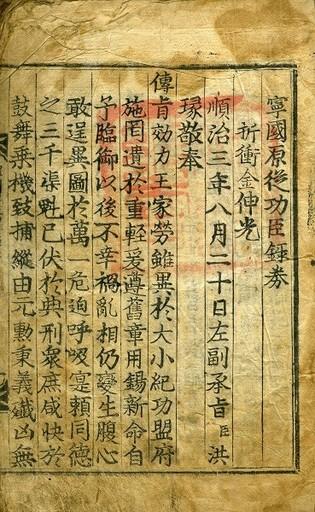 寧國原從功臣錄券
折衝金伸光
順治三年八月二十日左副承旨臣洪
瑑敬奉
傳旨效力王家勞雖異於大小紀功盟府
施罔遺於重輕爰遵舊章用錫新命自
予臨御以後不幸禍亂相仍變生腹心
敢逞異圖於萬一危迫呼吸寔賴同德
之三千渠魁已伏於典刑衆庶咸快於
鼓舞乗機致捕縱由元勳秉義鐵凶無